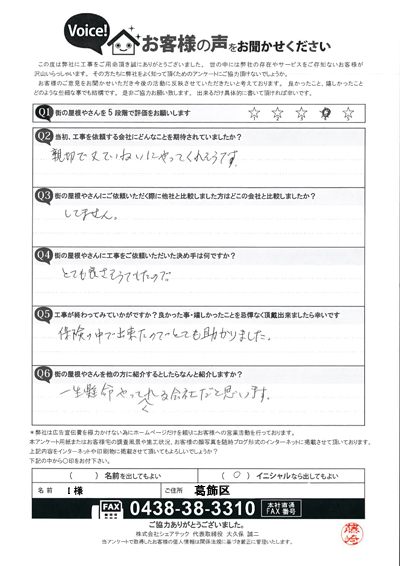 Voice!
お客様の声をお聞かせください
この度は弊社に工事をご用命頂き誠にありがとうございました。世の中には弊社の存在やサービスをご存知ないお客様が
沢山いらっしゃいます。その方たちに弊社をよく知って頂くためのアンケートにご協力頂けないでしょうか。
お客様のご意見をお聞かせいただき今後の活動に反映させていただきたいと考えております。良かったこと、嬉しかったこと
どのような些細な事でも結構です。是非ご協力お願い致します。出来るだけ具体的に書いて頂ければ幸いです。
Q1 街の屋根やさんを5段階で評価をお願いします ☆ ☆ ☆ ☆ ☆
Q2 当初、工事を依頼する会社にどんなことを期待されていましたか?
親切でていねいにやってくれそうです
Q3 街の屋根やさんにご依頼いただく際に他社と比較しました方はどこの会社と比較しましたか?
してません。
Q4 街の屋根やさんに工事をご依頼いただいた決め手は何ですか?
とても良さそうでしたので
Q5 工事が終わってみていかがですか?良かった事・嬉しかったことを忌憚なく頂戴出来ましたら幸いです
保険の中で出来たのでとても助かりました。
Q6 街の屋根やさんを他の方に紹介するとしたらなんと紹介しますか?
一生懸命やってくれる会社だと思います。
*弊社は広告宣伝費を極力かけない為にホームページだけを頼りにお客様への営業活動を行っております。
本アンケート用紙またはお客様宅の調査風景や施工状況、お客様の顔写真を随時ブログ形式のインターネットに掲載させて頂いております。
上記内容をインターネットや印刷物に掲載させて頂いてもよろしいでしょうか?
下記の中から○印をお付下さい。
( )名前を出してもよい (○)イニシャルなら出してもよい
名前 I様 葛飾区
FAX 0438-38-3310 本社直通 FAX番号
ご協力ありがとうございました。
株式会社シェアテック 代表取締役 大久保 誠二
当アンケートで取得したお客様の個人情報は関係法規に基づき厳正に管理いたします。